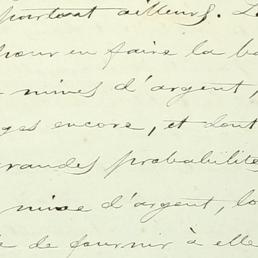 partout ailleurs. L
pour en faire la ba
mines d'argent,
ges encore, et dont
grandes probabilité
mine d'argent, lo
de fournir à elle